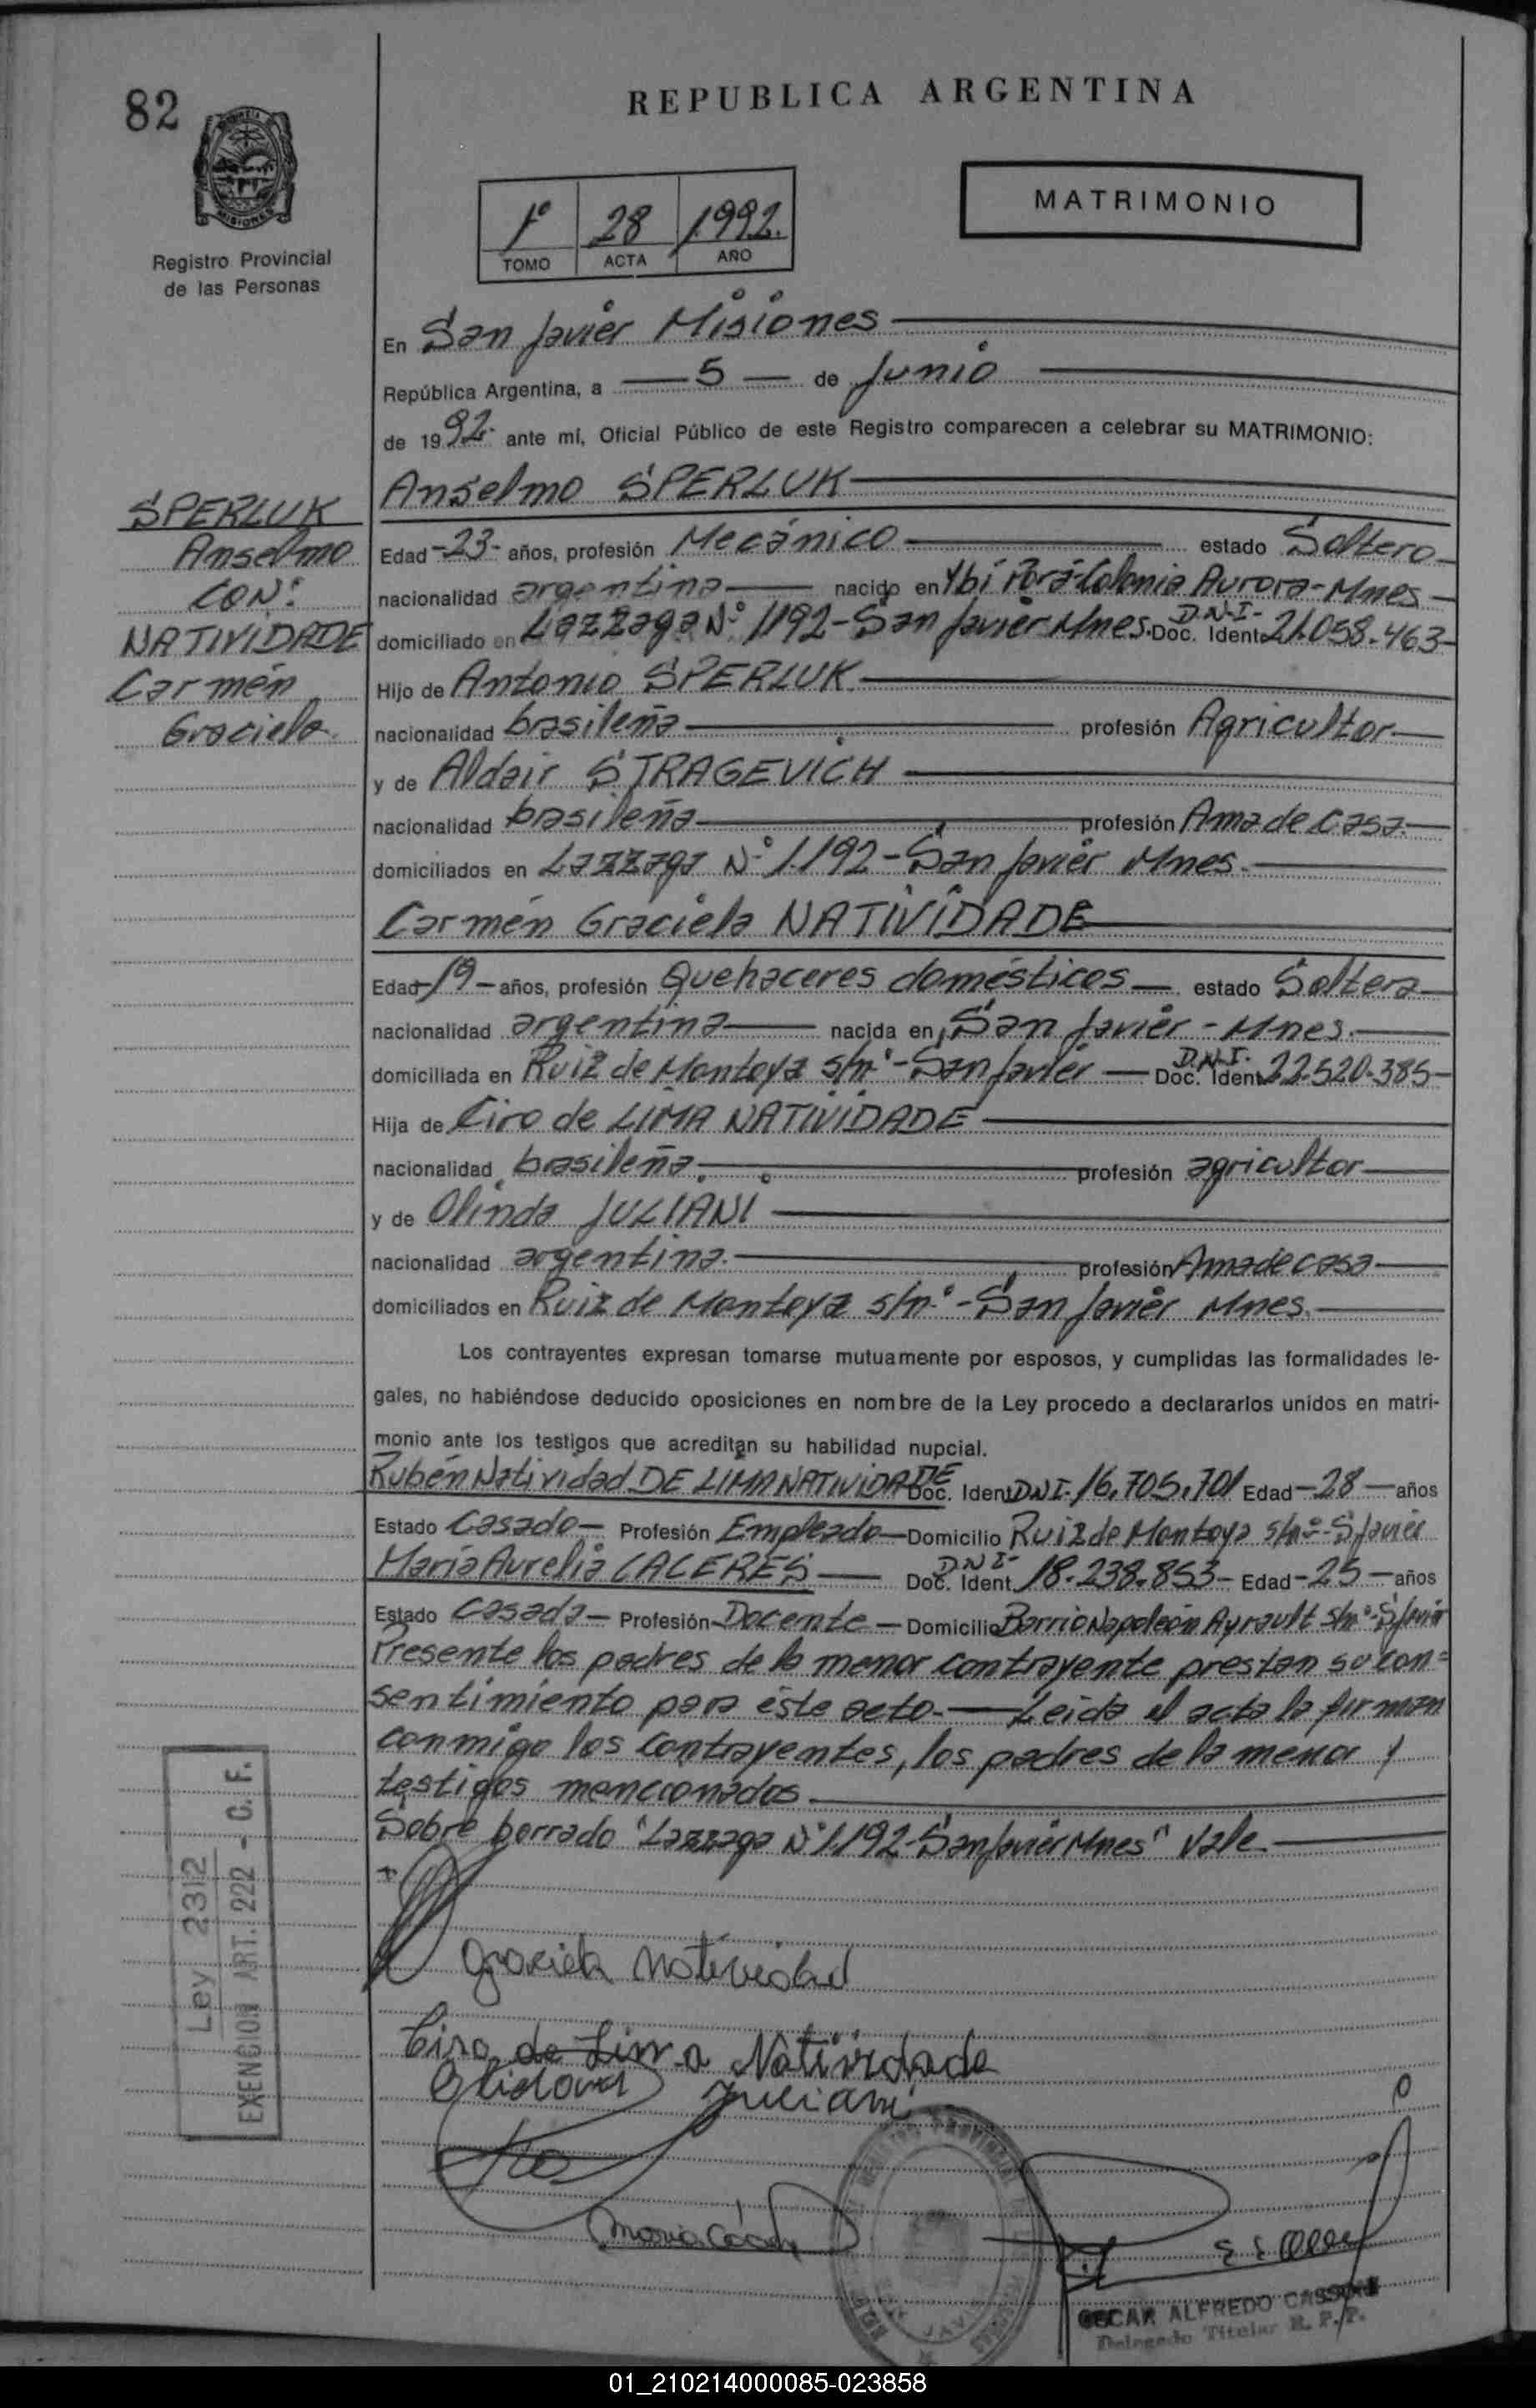 82
REPUBLICA ARGENTINA
MISIONES
Registro Provincial
de las Personas
1º 28 1992.
TOMO ACTA AÑO
MATRIMONIO
En San Javier Misiones
República Argentina, a — 5 — de Junio
de 1992.- ante mí, Oficial Público de este Registro comparecen a celebrar su MATRIMONIO:
SPERLUK
Anselmo
CON:
NATIVIDADE
Carmén
Graciela.
Anselmo SPERLUK
Edad -23- años, profesión Mecánico estado Soltero
nacionalidad argentina nacido en Ybí Porá-Colonia Aurora-Mnes
domiciliado en Lazzaga Nº 1192-San Javier Mnes. D.N.I- Doc. Ident 21.058.463-
Hijo de Antonio SPERLUK.
nacionalidad brasileña profesión Agricultor
y de Aldair STRAGEVICH
nacionalidad brasileña profesión Ama de casa.
domiciliados en Lazzaga Nº 1.192-San Javier Mnes.
Carmén Graciela NATIVIDADE
Edad -19- años, profesión Quehaceres domésticos estado Soltera
nacionalidad argentina nacida en San Javier - Mnes.
domiciliada en Ruiz de Montoya s/nº-San Javier — D.N.I. Doc. Ident 22.520.385-
Hija de Ciro de LIMA NATIVIDADE
nacionalidad brasileña. profesión agricultor
y de Olinda JULIANI
nacionalidad argentina. profesión Ama de casa
domiciliados en Ruiz de Montoya s/n.º-San Javier Mnes.
Los contrayentes expresan tomarse mutuamente por esposos, y cumplidas las formalidades le-
gales, no habiéndose deducido oposiciones en nombre de la Ley procedo a declararlos unidos en matri-
monio ante los testigos que acreditan su habilidad nupcial.
Rubén Natividad DE LIMA NATIVIDADE Doc. Ident DNI- 16.705.701 Edad -28- años
Estado Casado - Profesión Empleado - Domicilio Ruiz de Montoya s/nº-S Javier
María Aurelia CACERES — D N I- Doc. Ident 18.238.853- Edad -25- años
Estado Casada - Profesión Docente - Domicilio Barrio Napoleón Ayrault s/nº-S Javier
Presente los padres de la menor contrayente prestan su con=
sentimiento para éste acto.— Leida el acta la firman
conmigo los contrayentes, los padres de la menor y
testigos mencionados.
Sobre borrado "Lazzaga Nº 1.192-San Javier Mnes" Vale.
Graciela Natividad
Ciro de Lima Natividade
Juliani
Ley 2312
EXENCION ART. 222 - C. F.
OSCAR ALFREDO
Delegado Titular R. P. P.
01_210214000085-023858